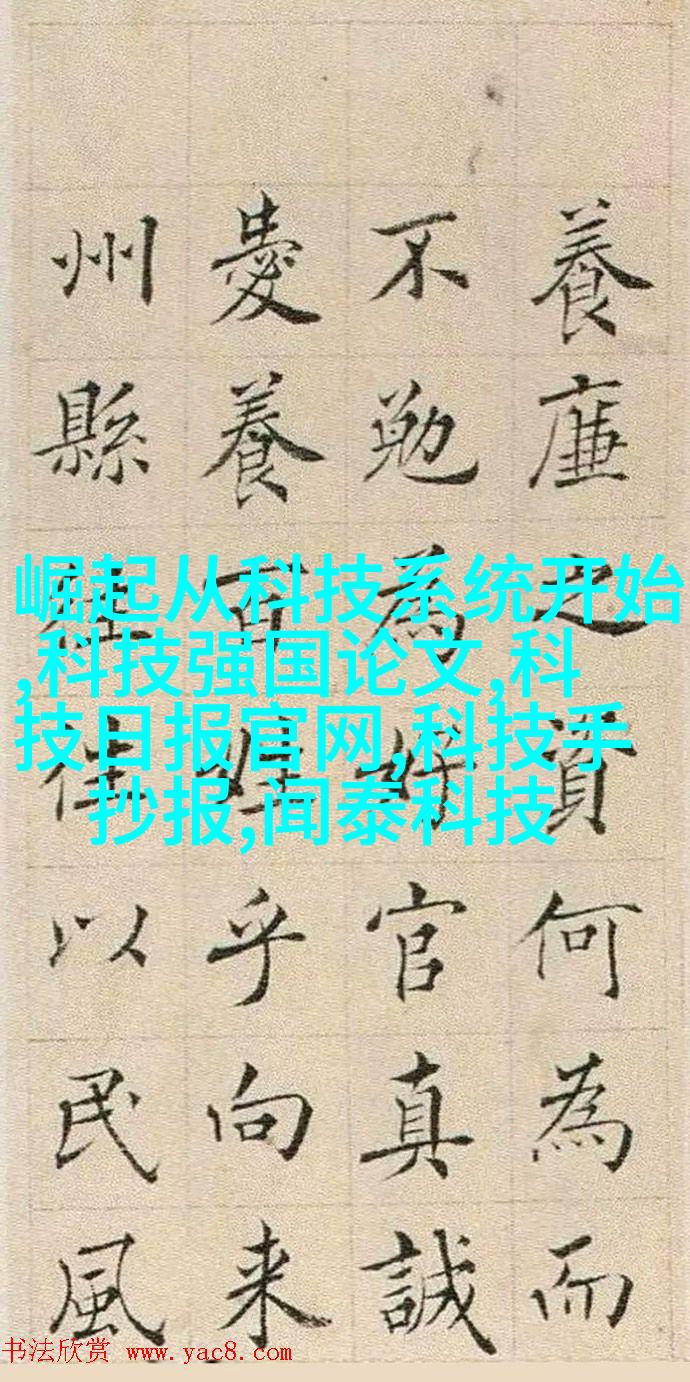 養廉之資何為而
不勉為好官真誠
愛養百姓乎向来
州縣往往以民風
崛起从科技系统开始
,科技强国论文,科
技日报官网,科技手
抄报,闻泰科技
书法欣赏 www.yac8.com